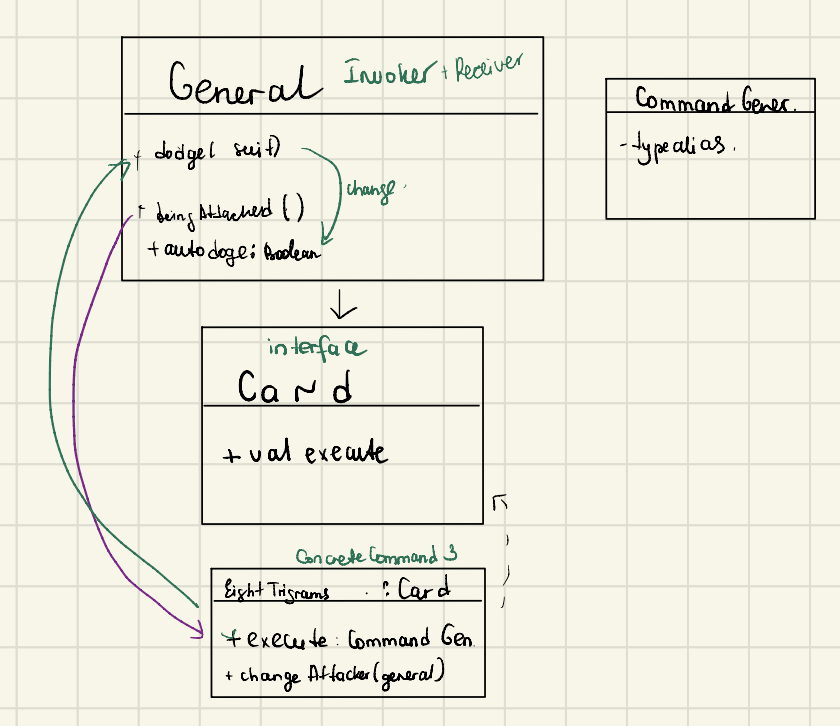 General Invoker + Receiver
+ dodge( suit)
change
+ beingAttacked ()
+ autodoge: Boolean
Command Gener.
- typealias.
interface
Card
+ val execute
Concrete Command 3
Eight Trigrams : Card
+ execute : Command Gen
+ change Attacker(general)